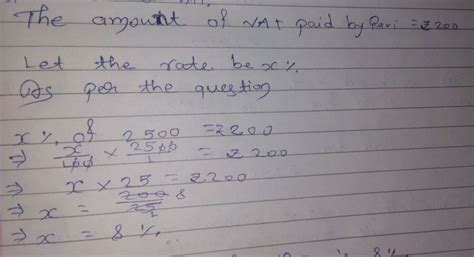 The amount of VAT paid by Ravi = ₹200
Let the rate be x%.
As per the question
x% of 2500 = ₹200
⇒ x/100 × 2500/1 = ₹200
⇒ x × 25 = ₹200
⇒ x = 200/25 8 1
⇒ x = 8%.
8%.